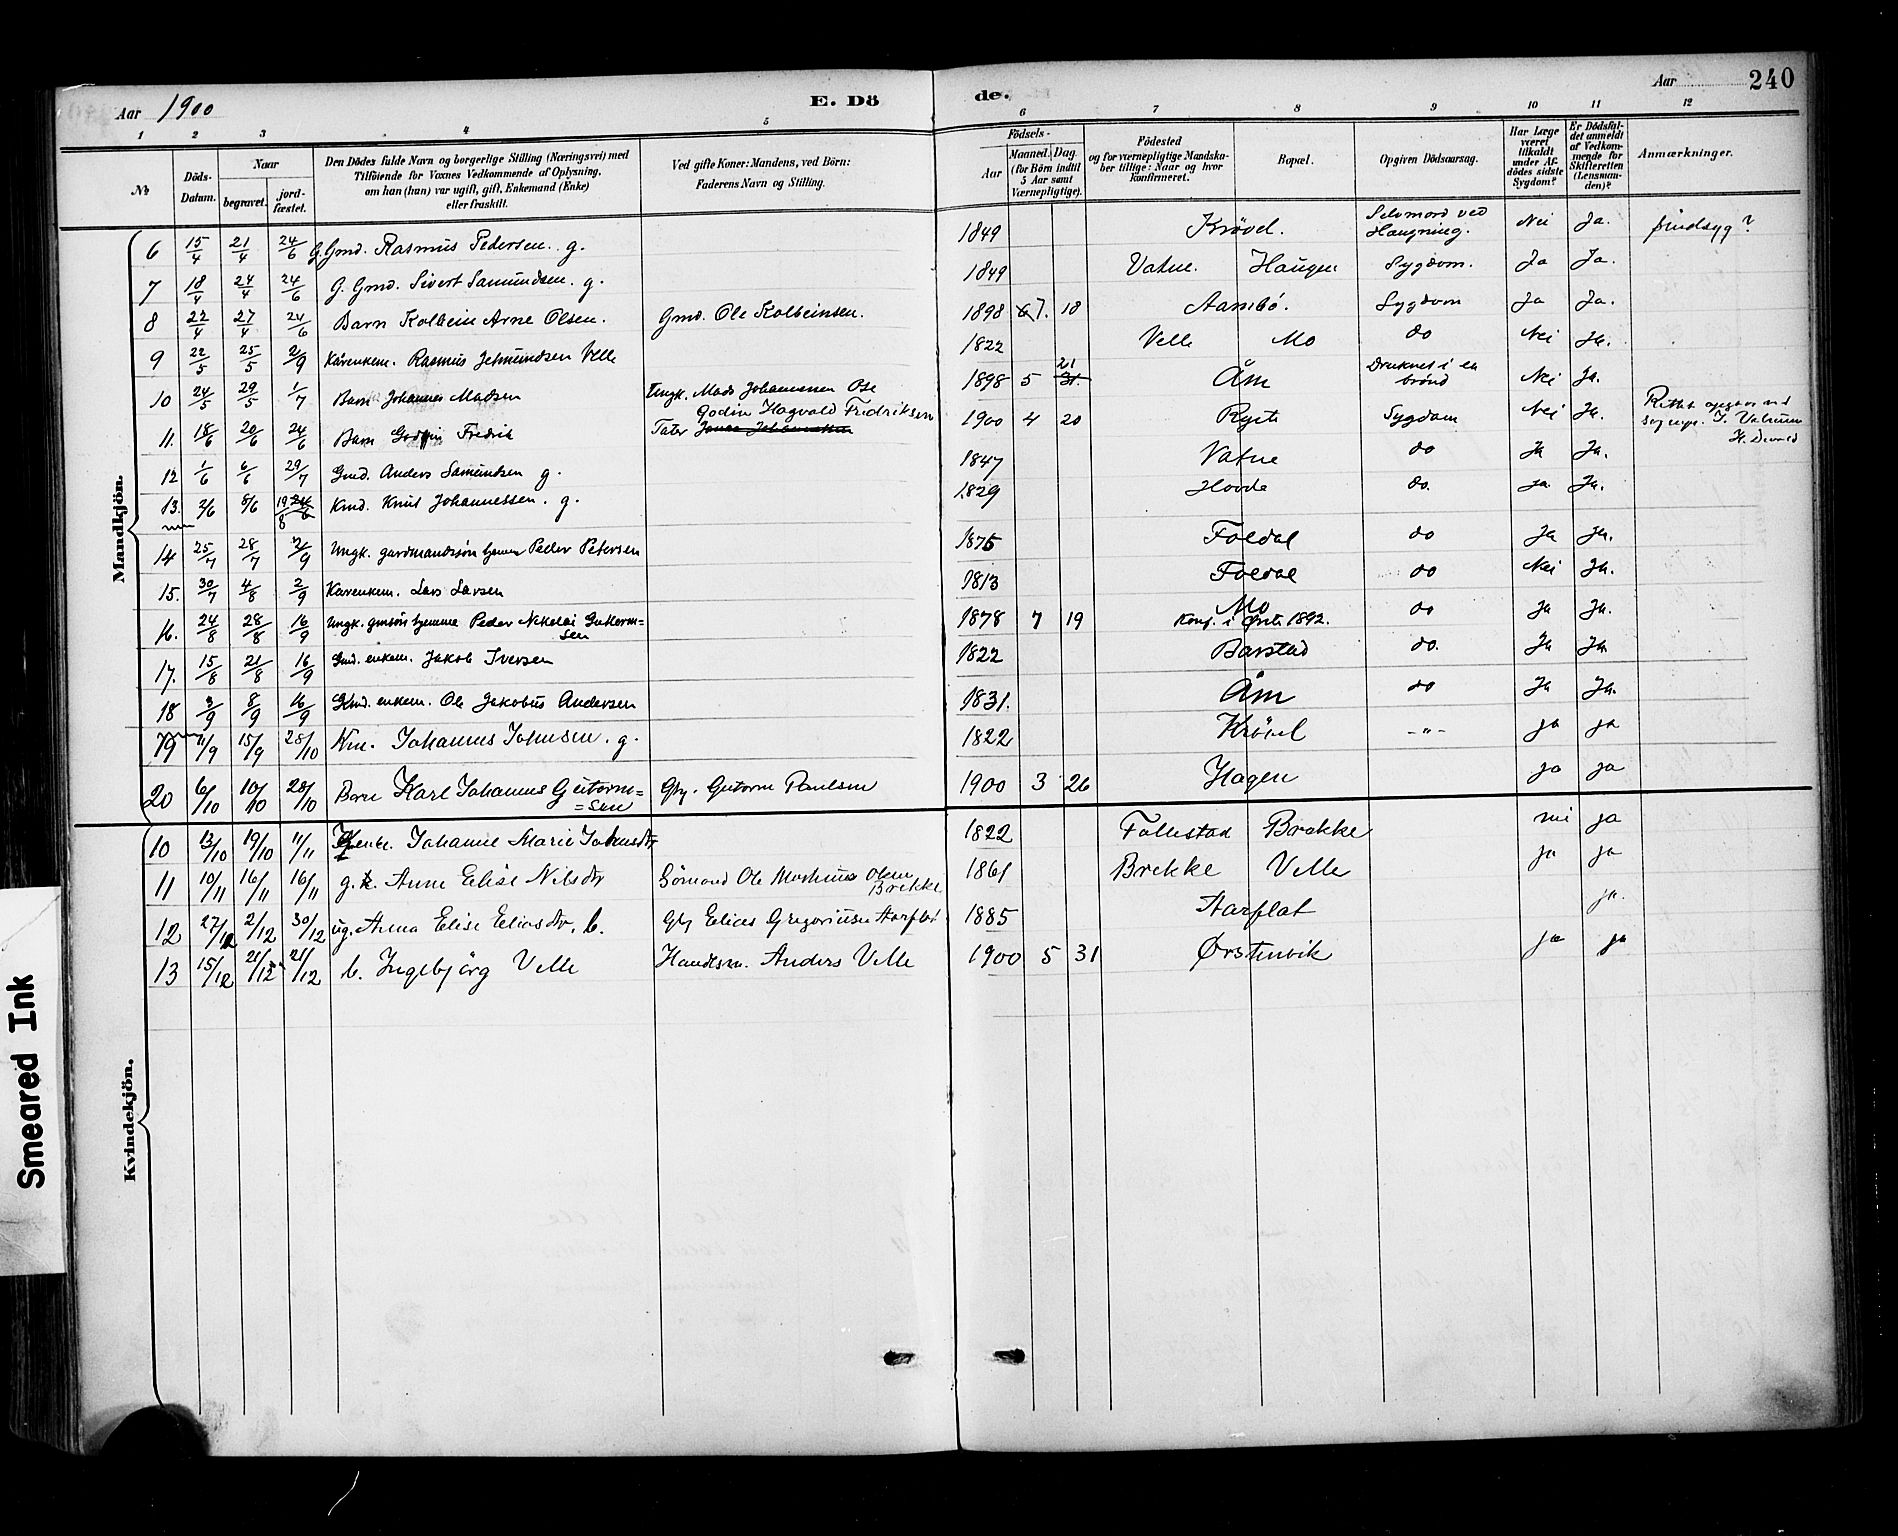 Aar 1900
E. Döde.
Aar 240
1 2 3 4 5 6 7 8 9 10 11 12
№
Döds-Datum.
Naar
begravet.
jord-fæstet.
Den Dödes fulde Navn og borgerlige Stilling (Næringsvei) med
Tilföiende for Voxnes Vedkommende af Oplysning,
om han (hun) var ugift, gift, Enkemand (Enke)
eller fraskilt.
Ved gifte Koner: Mandens, ved Börn:
Faderens Navn og Stilling.
Födsels-
Aar
Maaned. Dag.
(for Börn indtil
5 Aar samt
Værnepligtige).
Födested
og for værnepligtige Mandska-
ber tillige: Naar og hvor
konfirmeret.
Bopæl.
Opgiven Dödsaarsag.
Har Læge
været
tilkaldt
under Af-
dödes sidste
Sygdom?
Er Dödsfal-
det anmeldt
af Vedkom-
mende for
Skifteretten
(Lensman-
den)?
Anmærkninger.
Mandkjön.
6 15/4 21/4 24/6 G. Gmd. Rasmus Pedersen. g. 1849 Krövel. Selvmord ved Hængning. Nei Ja. sindsyg?
7 18/4 24/4 24/6 G. Gmd. Sivert Samundsen. g. 1849 Vatne. Haugen Sygdom. Ja Ja.
8 22/4 27/4 24/6 Barn Kolbein Arne Olsen. Gmd. Ole Kolbeinsen. 1898 7. 18 Aambö. Sygdom Ja Ja.
9 22/5 25/5 2/9 Kårenkem. Rasmus Jetmundsen Velle 1822 Velle Mo do Nei Ja.
10 24/5 29/5 1/7 Barn Johannes Madsen Ungk. Mads Johannesen Ose 1898 5 21 31. Åm Druknet i en brönd Nei Ja.
11. 18/6 20/6 24/6 Barn Fredrik Godin Hagvald Fredriksen Tater 1900 4 20 Ryste Sygdom Nei Ja. Rettet
12 1/6 6/6 29/7 Gmd. Anders Samundsen g. 1847 Vatne do Ja Ja.
13. 2/6 8/6 19/8 24/6 Kmd. Knut Johannessen. g. 1829 Hovde do. Ja Ja.
14 25/7 28/7 2/9 Ungk. gardmandssön hjemme Peder Petersen 1875 Foldal do Ja Ja.
15. 30/7 4/8 2/9 Kårenkem. Lars Larsen 1813 Foldal do Nei Ja.
16. 24/8 28/8 16/9 Ungk. gmsön hjemme Peder Nikolai Guttorm=sen 1878 7 19 Mo Konf. i Örst. 1892. do Ja Ja.
17. 15/8 21/8 16/9 Gmd. enkem. Jakob Iversen 1822 Barstad do. Ja Ja
18 3/9 8/9 16/9 Gmd. enkem. Ole Jakobus Andersen 1831. Åm do Ja Ja.
19 11/9 15/9 28/10 Km. Johannes Johnsen. g. 1822 Krövel -"- ja ja
20 6/10 10/10 28/10 Barn Karl Johannes Guttorm==sen Gbr. Guttorm Paulsen 1900 3 26 Hagen ja ja
Kvindekjön.
10 13/10 19/10 11/11 Johanne Marie Johnsdtr 1822 Follestad Brekke nei ja
11 10/11 16/11 16/11 g.k. Anne Elise Nilsdtr Sömand Ole Martinus Olsen Brekke 1861 Brekke Velle ja ja
12 27/12 2/12 30/12 ug. Anna Elise Eliasdtr. b. Gbr Elias Gregoriusen Aarflot 1885 Aarflot ja.
13 15/12 21/12 21/12 b. Ingebjörg Velle Handlsm. Anders Velle 1900 5 31 Ørstenvik ja ja
Smeared Ink